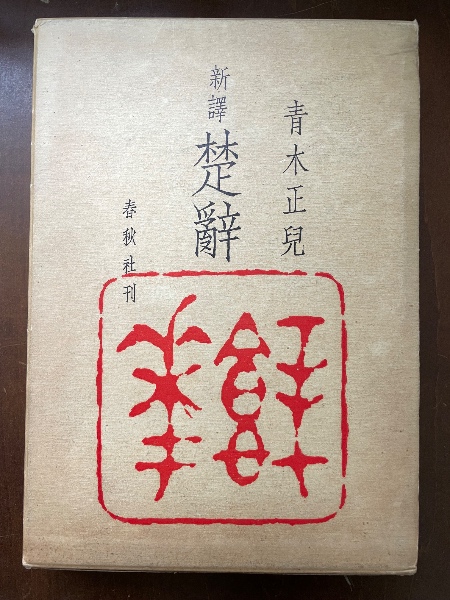 青木正兒
新譯
楚辭
春秋社刊